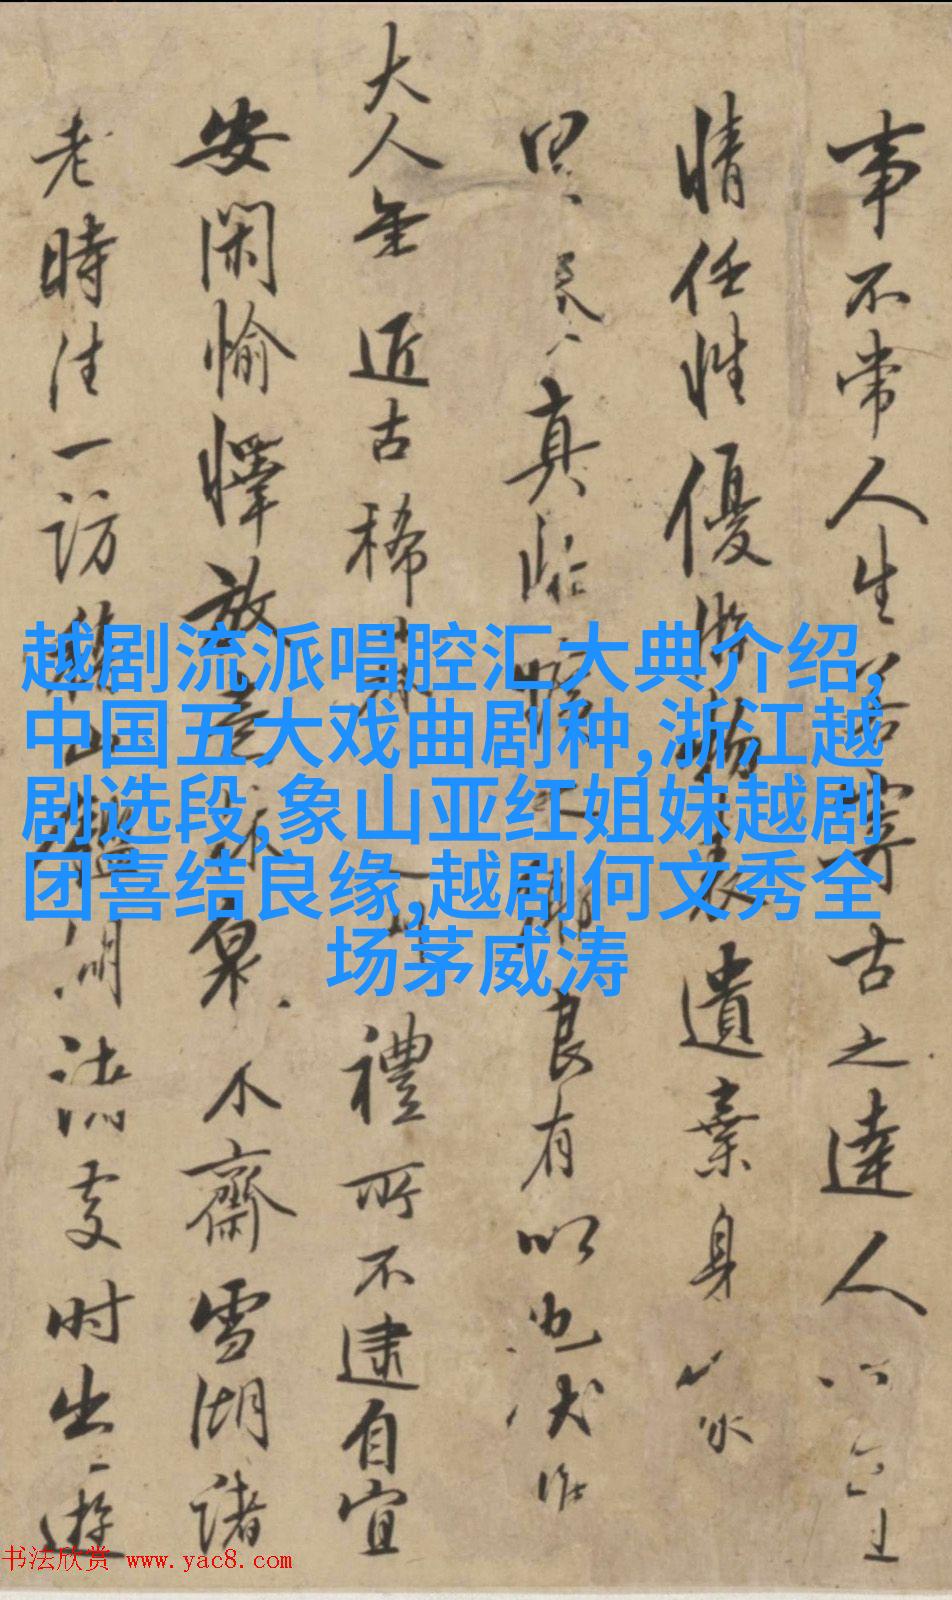 事不常人生若寄古之達人
情任性優游物表遺棄身
真 良有以也
大人年近古稀 禮所不逮自宜
安閑愉懌放意林泉木齋雪湖諸
老時往一訪 山 時出遊
越剧流派唱腔汇大典介绍,
中国五大戏曲剧种,浙江越
剧选段,象山亚红姐妹越剧
团喜结良缘,越剧何文秀全
场茅威涛
书法欣赏 www.yac8.com